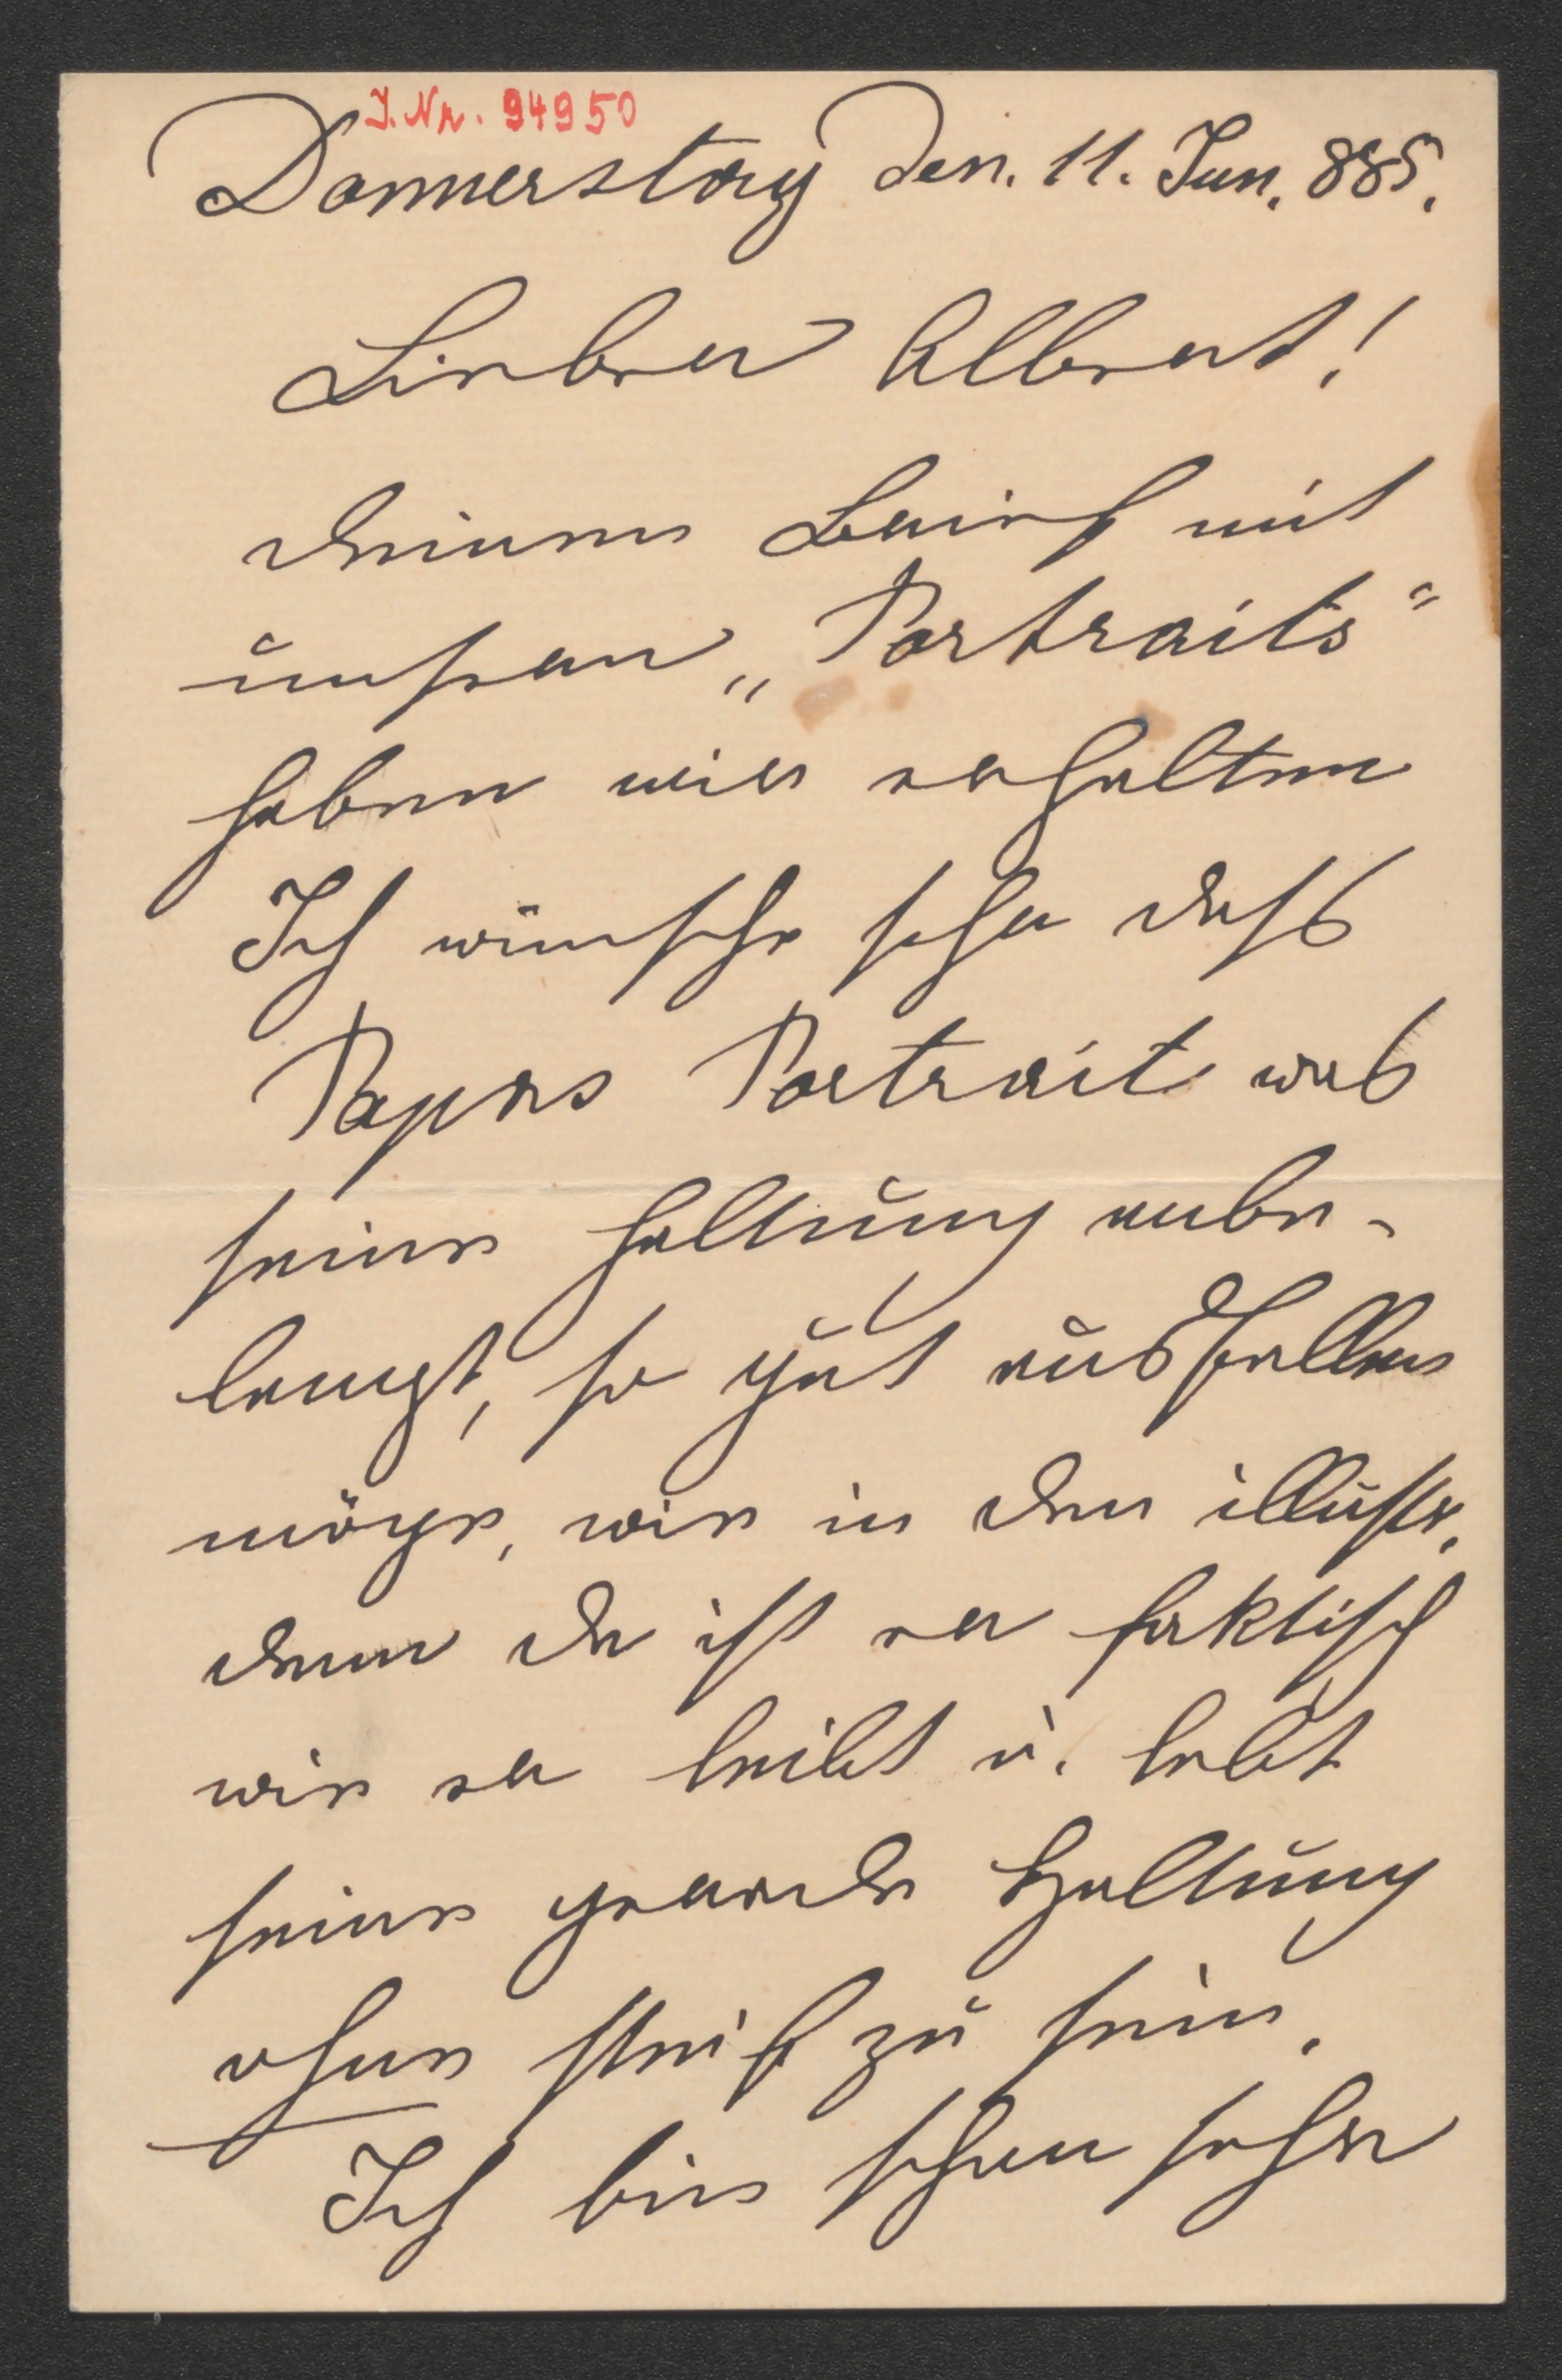 J. Nr. 94950
Donnerstag den. 11. Jun. 885.
Lieber Albert!
deinen Brief mit
unsern „Portraits"
haben wir erhalten
Ich wünsche sehr dass
Papas Portrait was
seine Haltung anbe-
langt, so gut ausfallen
möge, wie in den illustr.
denn da ist er faktisch
wie er leibt u. lebt
seine grade Haltung
ohne steif zu sein.
Ich bin schon sehr